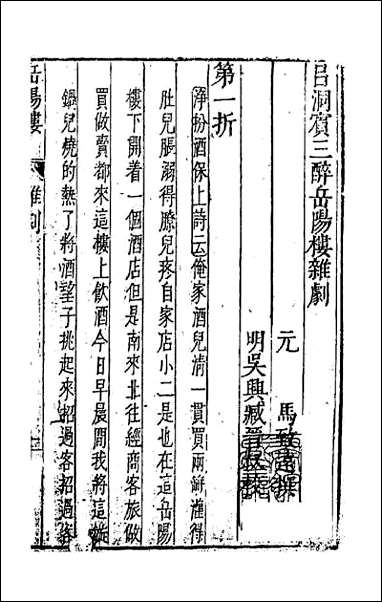 呂洞賓三醉岳陽樓雜劇
元 馬致遠撰
明吳興臧晉叔校
第一折
淨扮酒保上詩云俺家酒兒清一貫買兩缾灌得
肚兒脹溺得膫兒疼自家店小二是也在這岳陽
樓下開着一個酒店但是南來北往經商客旅做
買做賣都來這樓上飲酒今日早晨間我將這鏇
鍋兒燒的熱了將酒望子挑起來招過客招過客
岳陽樓 雜劇 一